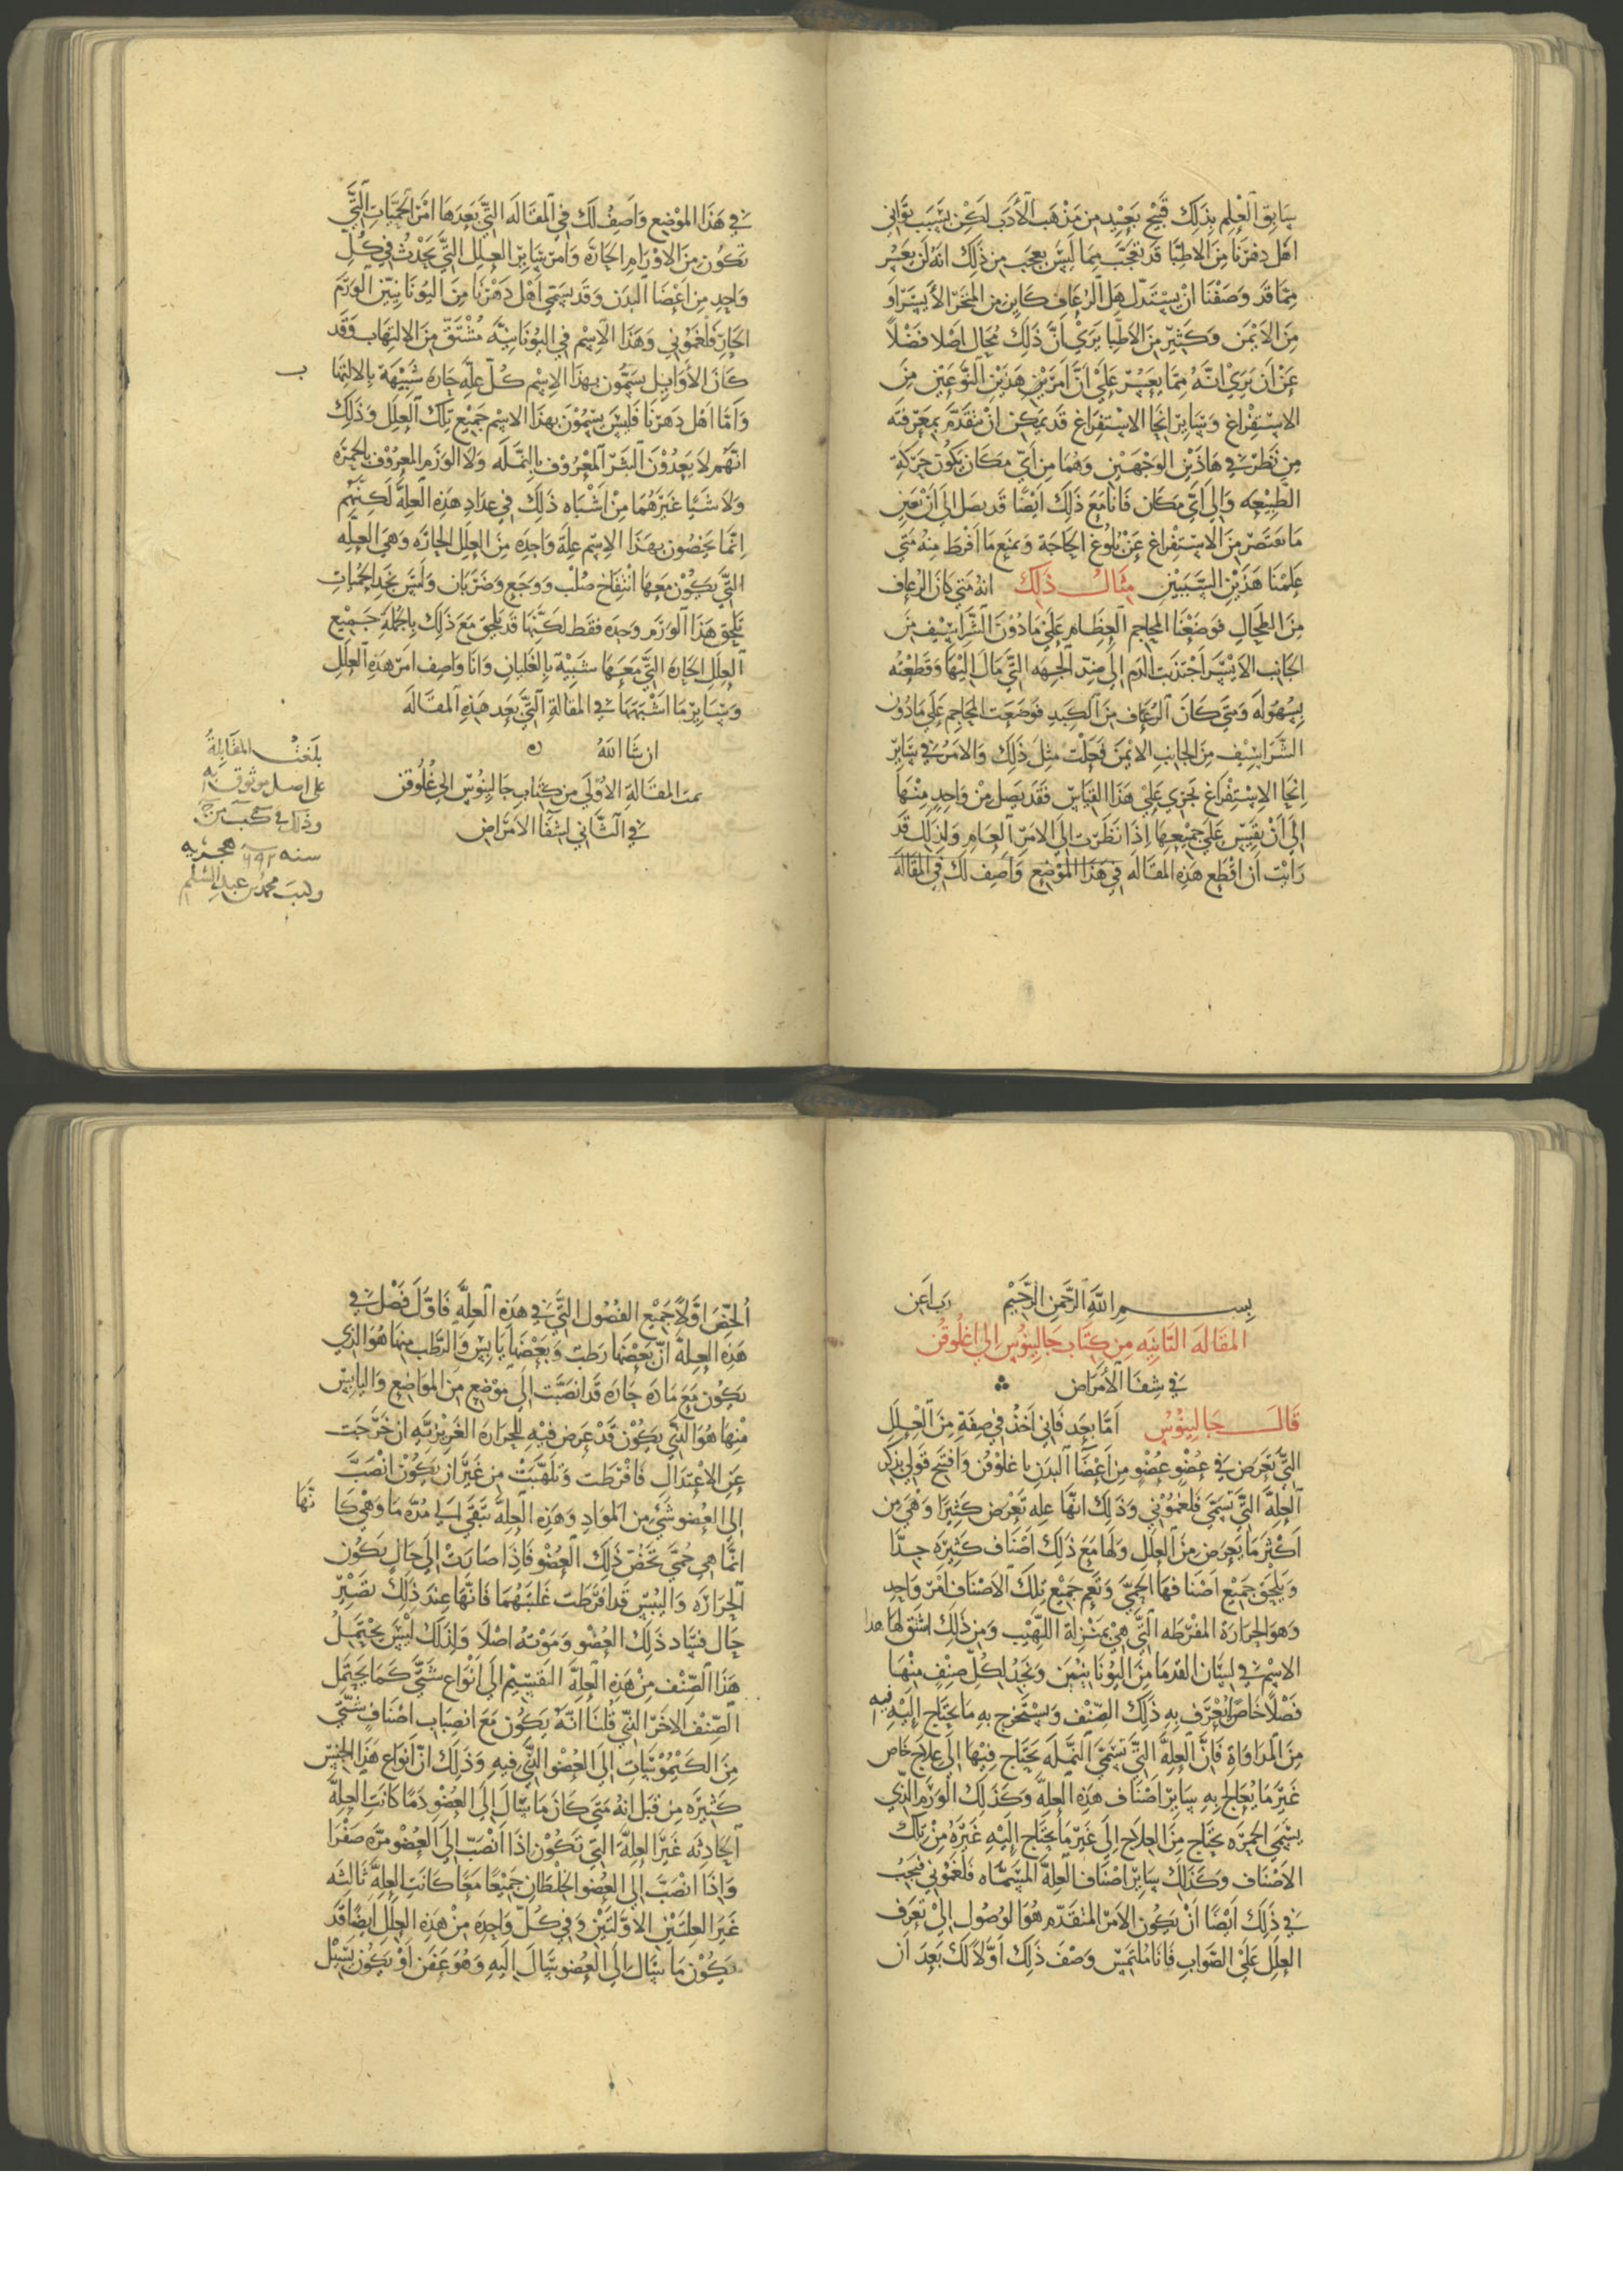 سابق العلم بذلك قبيح بعيد من مذهب الأدب لكن بسبب تواني
اهل دهرنا من الاطبا قد تعجب مما ليس بعجب من ذلك انه لن يعسر
مما قد وصفنا ان يستدل هل الرعاف كاين من المنخر الأيسر او
من الايمن وكثير من الاطبا يري ان ذلك محال اصلا فضلاً
عن ان يري انه مما يعسر علي ان امر هذين النوعين من
الاستفراغ وساير انحا الاستفراغ قد يمكن ان نتقدم بمعرفته
من نظر في هاذين الوجهين وهما من اي مكان يكون حركة
الطبيعه والي اي مكان فانا مع ذلك ايضا قد نصل الي ان نعين
ما نقص من الاستفراغ عن بلوغ الحاجة ونمنع ما افرط منه متي
علمنا هذين السببين مثال ذلك انه متي كان الرعاف
من الطحال فوضعنا المحاجم العظام علي ما دون الشراسيف من
الجانب الايسر اجتذبت الدم الي ضد الجهه التي مال اليها وقطعته
بسهوله ومتي كان الرعاف من الكبد فوضعت المحاجم علي ما دون
الشراسيف من الجانب الايمن فعلت مثل ذلك والامر في ساير
انحا الاستفراغ يجري علي هذا القياس فقد يصل من واحد منها
الي ان يقيس علي جميعها اذا نظرت الي الامر العام ولذلك قد
رايت ان اقطع هذه المقاله في هذا الموضع واصف لك في المقالة
في هذا الموضع واصف لك في المقاله التي بعدها امر الحميات التي
تكون من الاورام الحارة وامر ساير العلل التي تحدث في كل
واحد من اعضا البدن وقد يسمي اهل دهرنا من اليونانيين الورم
الحار فلغموني وهذا الاسم في اليونانية مشتق من الالتهاب وقد
كان الأوايل يسمون بهذا الاسم كل علة حارة شبيهة بالالتها ب
واما اهل دهرنا فليس يسمون بهذا الاسم جميع تلك العلل وذلك
انهم لا يعدون البثر المعروف بالنمله ولا الورم المعروف بالحمرة
ولا شيا غيرهما من اشباه ذلك في عداد هذه العلة لكنهم
انما يخصون بهذا الاسم علة واحدة من العلل الحارة وهي العله
التي يكون معها انتفاخ صلب ووجع وضربان وليس نجد الحميات
تلحق هذا الورم وحده فقط لكنها قد تلحق مع ذلك بالجملة جميع
العلل الحارة التي معها شبيه بالغليان وانا واصف امر هذه العلل
وساير ما اشبهها في المقالة التي بعد هذه المقالة
ان شا الله ه
تمت المقالة الاولي من كتاب جالينوس الي غلوقن
في الثاني لشفا الامراض
بلغت المقابلة
علي اصل موثوق به
وذلك في
سنه هجريه
وكتب محمد بن عبد السلم
بسم الله الرحمن الرحيم رب اعن
المقاله الثانيه من كتاب جالينوس الي اغلوقن
في شفا الأمراض
قال جالينوس اما بعد فاني اخذ في صفة من العلل
التي تعرض في عضو عضو من اعضا البدن يا غلوقن وافتتح قولي بذكر
العلة التي تسمي فلغموني وذلك انها علة تعرض كثيرا وهي من
اكثر ما يعرض من العلل ولها مع ذلك اصناف كثيره جدا
ويلحق جميع اصنافها الحمي وتعم جميع تلك الاصناف امر واحد
وهو الحرارة المفرطه التي هي بمنزلة اللهيب ومن ذلك اشتق لها هذا
الاسم في لسان القدما من اليونانيين ونجد لكل صنف منها
فصلا خاصا يعرف به ذلك الصنف ويستخرج به ما يحتاج اليه فيه
من المداواة فان العلة التي تسمي النملة يحتاج فيها الي علاج خاص
غير ما يعالج به ساير اصناف هذه العلة وكذلك الورم الذي
يسمي الحمرة يحتاج من العلاج الي غير ما يحتاج اليه غيره من تلك
الاصناف وكذلك ساير اصناف العلة المسماه فلغموني فيجب
في ذلك ايضا ان يكون الامر المتقدم هو الوصول الي تعرف
العلل علي الصواب فانا ملتمس وصف ذلك اولا لك بعد ان
الخص اولا جميع الفصول التي في هذه العلة فاول فصل في
هذه العلة ان بعضها رطب وبعضها يابس والرطب منها هو الذي
يكون مع مادة حارة قد انصبت الي موضع من المواضع واليابس
منها هو الذي يكون قد عرض فيه للحرارة الغريزية ان خرجت
عن الاعتدال فافرطت وتلهبت من غير ان يكون انصب
الي العضو شي من المواد وهذه العلة تبقي الي مدة ما وهي كا نها
انما هي حمي تخص ذلك العضو فاذا صارت الي حال يكون
الحرارة واليبس قد افرطت غلبتهما فانها عند ذلك تصير
حال فساد ذلك العضو وموته اصلا ولذلك ليس يحتمل
هذا الصنف من هذه العلة التقسيم الي انواع شتي كما يحتمل
الصنف الاخر الذي قلنا انه يكون مع انصباب اصناف شتي
من الكيموسات الي العضو الذي فيه وذلك ان انواع هذا الجنس
كثيره من قبل انه متي كان ما سال الي العضو دما كانت العلة
الحادثه غير العلة التي تكون اذا انصب الي العضو مره صفرا
واذا انصب الي العضو الخلطان جميعا معا كانت العلة ثالثه
غير العلتين الاولتين وفي كل واحدة من هذه العلل ايضا قد
يكون ما سال الي العضو سال اليه وهو عفن او يكون يسيل